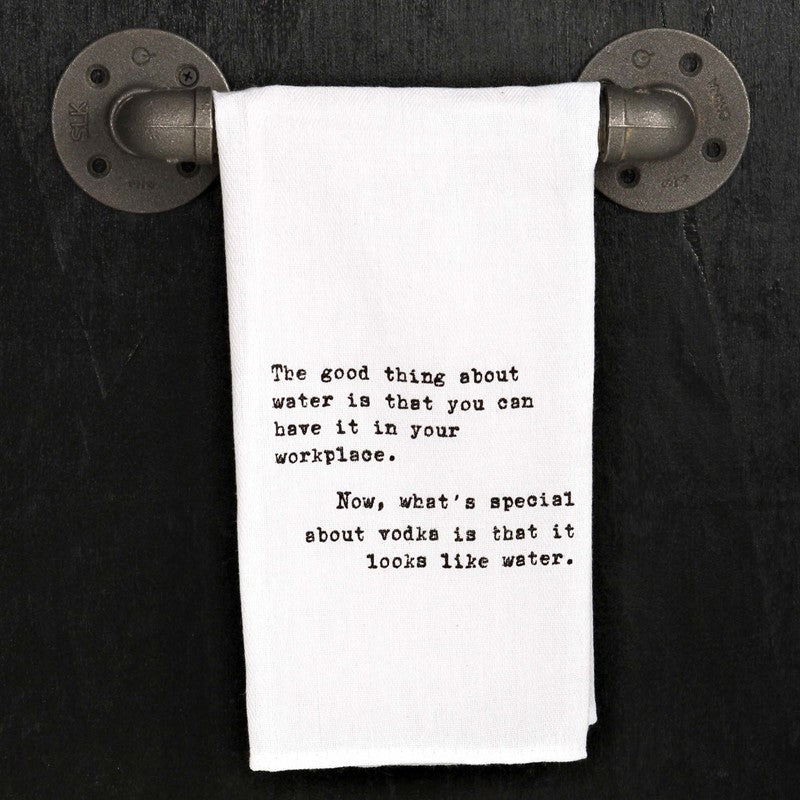 SLK
The good thing about
water is that you can
have it in your
workplace.
Now, what's special
about vodka is that it
looks like water.